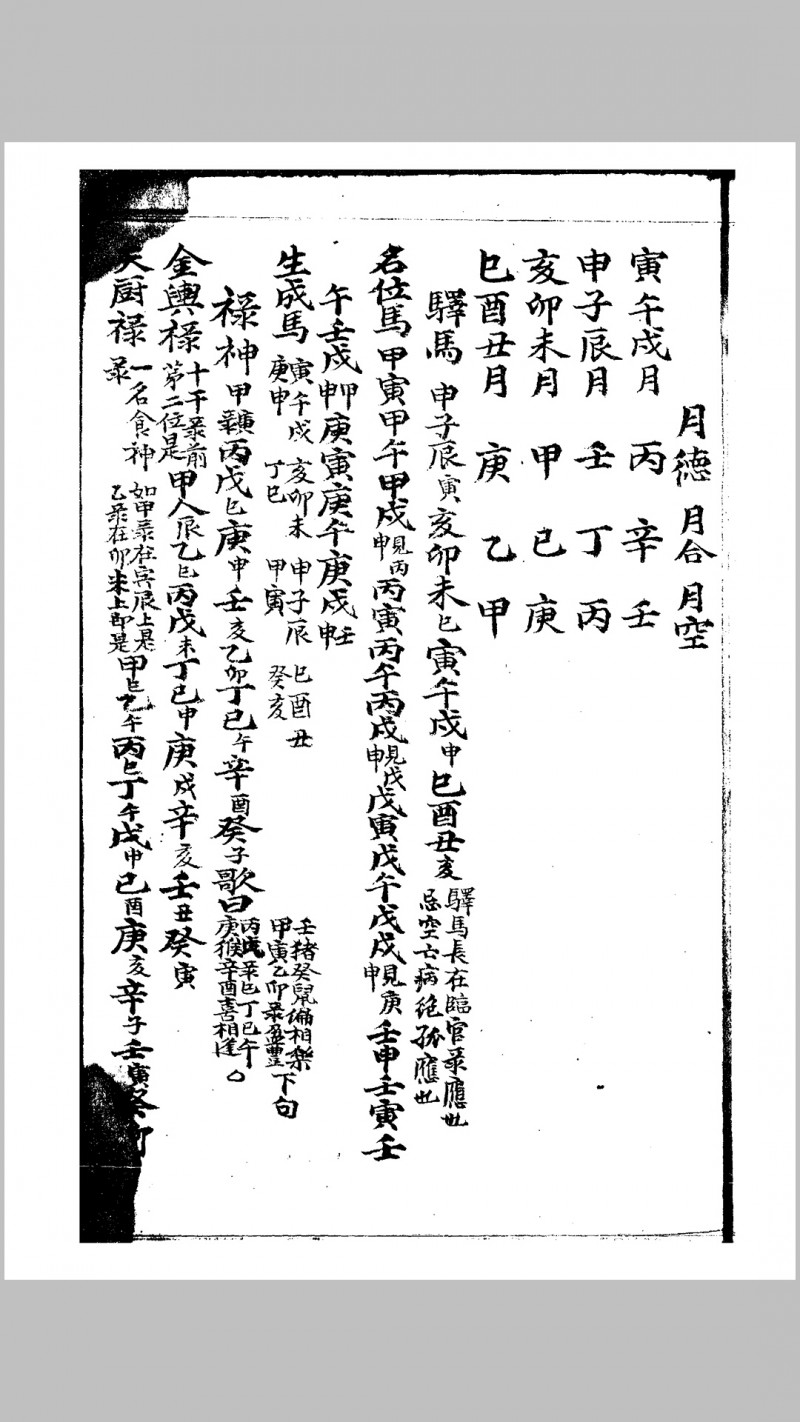 月德 月合 月空
寅午戌月 丙 辛 壬
申子辰月 壬 丁 丙
亥卯未月 甲 巳 庚
巳酉丑月 庚 乙 甲
驛馬 申子辰寅亥卯未巳寅午戌申巳酉丑亥 驛馬長在臨官彔應也
忌空亡病絶孤應也
名位馬 甲寅甲午甲戌申見丙丙寅丙午丙戌申見戊戊寅戊午戊戌申見庚壬申壬寅壬
午壬戌申甲庚寅庚午庚戌申壬
生成馬 寅午戌 亥卯未 申子辰 巳酉丑
庚申 丁巳 甲寅 癸亥
壬猪癸鼠偏相樂
甲寅乙卯彔盈豐 下句
禄神 甲寅丙戊巳庚申壬亥乙卯丁巳午辛酉癸子歌曰 丙戊彔巳丁巳午
庚猴辛酉喜相逢。
金輿禄 十干彔前
第二位是 甲人辰乙巳丙戊未丁巳申庚戌辛亥壬丑癸寅
天厨禄 一名食神
彔 如甲彔在寅辰上是
乙彔在卯未上即是 甲巳乙午丙巳丁午戊申巳酉庚亥辛子壬寅癸卯